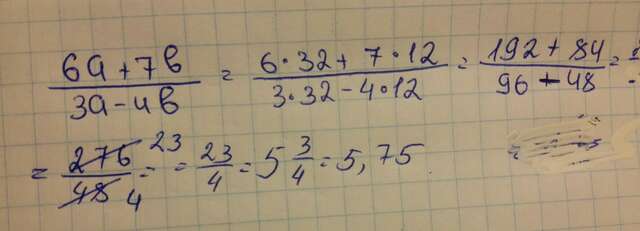 6a+7b / 3a-4b = 6·32+7·12 / 3·32-4·12 = 192+84 / 96-48 =
= 276 / 48 = 23 / 4 = 23/4 = 5 3/4 = 5,75